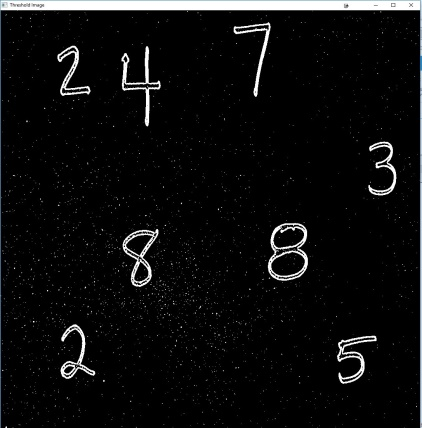 Threshold Image
2 4 7
3
8 8
2 5